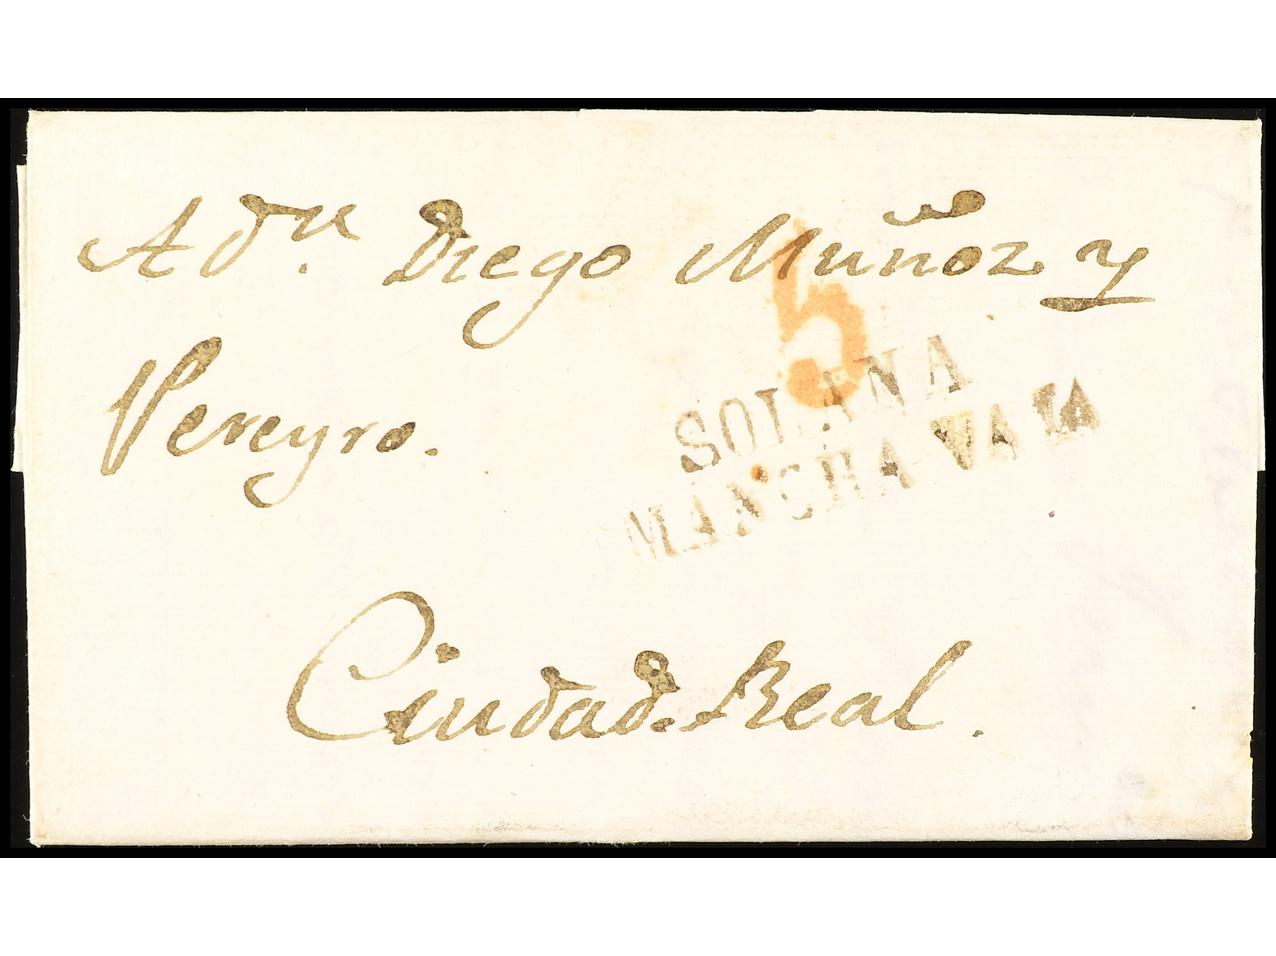 A dⁿ. Diego Muñoz y
Pereyro.
5
SOLANA
MANCHA.
Ciudad Real.